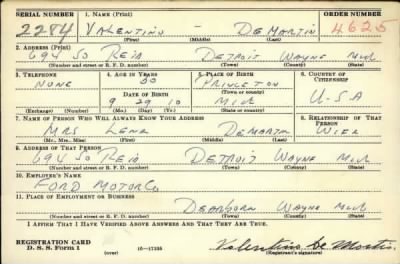 SERIAL NUMBER 1. NAME (Print) ORDER NUMBER
2284 VALENTINO - DEMARTIN 4625
(First) (Middle) (Last)
2. ADDRESS (Print)
694 SO REID DETROIT WAYNE MICH
(Number and street or R. F. D. number) (Town) (County) (State)
3. TELEPHONE 4. AGE IN YEARS 5. PLACE OF BIRTH 6. COUNTRY OF CITIZENSHIP
NONE 30 PRINCETON
DATE OF BIRTH (Town or county)
9 29 10 MICH U-S-A
(Exchange) (Number) (Mo.) (Day) (Yr.) (State or country)
7. NAME OF PERSON WHO WILL ALWAYS KNOW YOUR ADDRESS 8. RELATIONSHIP OF THAT PERSON
MRS LENA DEMARTIN WIFE
(Mr., Mrs., Miss) (First) (Middle) (Last)
9. ADDRESS OF THAT PERSON
694 SO REID DETROIT WAYNE MICH
(Number and street or R. F. D. number) (Town) (County) (State)
10. EMPLOYER'S NAME
FORD MOTOR CO
11. PLACE OF EMPLOYMENT OR BUSINESS
DEARBORN WAYNE MICH
(Number and street or R. F. D. number) (Town) (County) (State)
I AFFIRM THAT I HAVE VERIFIED ABOVE ANSWERS AND THAT THEY ARE TRUE.
REGISTRATION CARD
D. S. S. FORM 1 16-17105 Valentino De Martin
(over) (Registrant's signature)